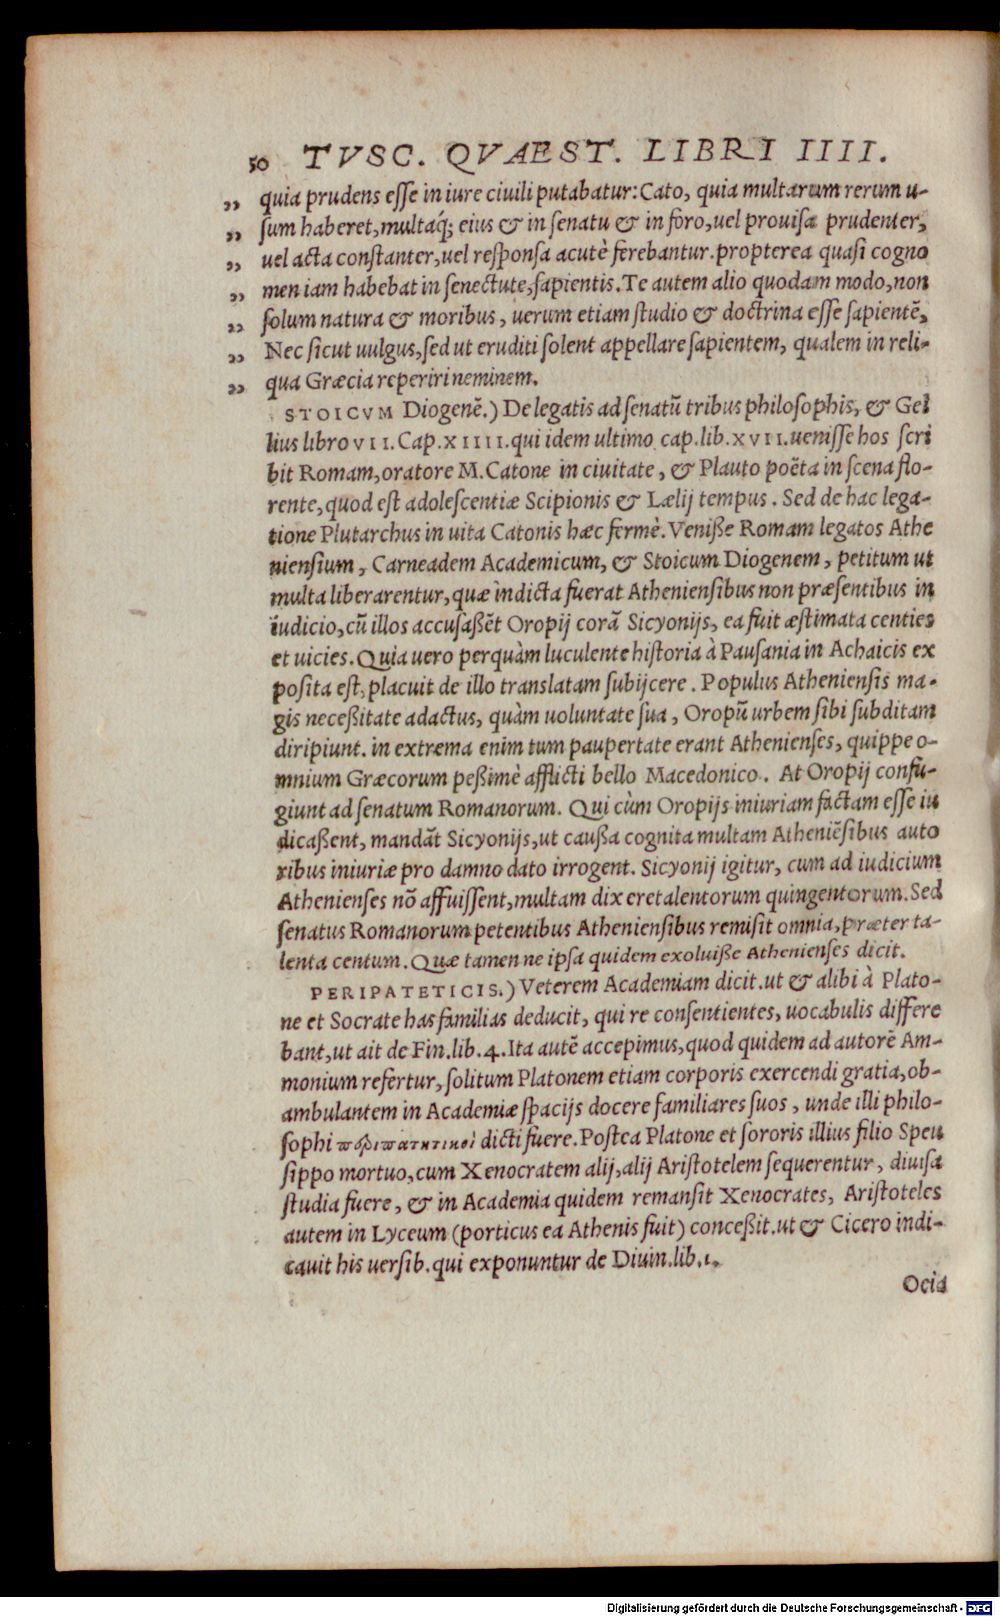 50 TVSC. QVAEST. LIBRI IIII.
„ quia prudens esse in iure ciuili putabatur: Cato, quia multarum rerum u-
„ sum haberet, multaq́; eius & in senatu & in foro, uel prouisa prudenter,
„ uel acta constanter, uel responsa acutè ferebantur. propterea quasi cogno
„ men iam habebat in senectute, sapientis. Te autem alio quodam modo, non
„ solum natura & moribus, uerum etiam studio & doctrina esse sapientẽ,
„ Nec sicut uulgus, sed ut eruditi solent appellare sapientem, qualem in reli-
„ qua Græcia reperiri neminem.
STOICVM Diogenẽ.) De legatis ad senatũ tribus philosophis, & Gel
lius libro VII. Cap. XIIII. qui idem ultimo cap. lib. XVII. uenisse hos scri
bit Romam, oratore M. Catone in ciuitate, & Plauto poëta in scena flo-
rente, quod est adolescentiæ Scipionis & Lælij tempus. Sed de hac lega-
tione Plutarchus in uita Catonis hæc fermè. Veniße Romam legatos Athe
niensium, Carneadem Academicum, & Stoicum Diogenem, petitum ut
multa liberarentur, quæ indicta fuerat Atheniensibus non præsentibus in
iudicio, cũ illos accusaßẽt Oropij corã Sicyonijs, ea fuit æstimata centies
et uicies. Quia uero perquàm luculente historia à Pausania in Achaicis ex
posita est, placuit de illo translatam subijcere. Populus Atheniensis ma-
gis neceßitate adactus, quàm uoluntate sua, Oropũ urbem sibi subditam
diripiunt. in extrema enim tum paupertate erant Athenienses, quippe o-
mnium Græcorum peßimè afflicti bello Macedonico. At Oropij confu-
giunt ad senatum Romanorum. Qui cùm Oropijs iniuriam factam esse iu
dicaßent, mandãt Sicyonijs, ut caußa cognita multam Atheniẽsibus auto
ribus iniuriæ pro damno dato irrogent. Sicyonij igitur, cum ad iudicium
Athenienses nõ affuissent, multam dixere talentorum quingentorum. Sed
senatus Romanorum petentibus Atheniensibus remisit omnia, præter ta-
lenta centum. Quæ tamen ne ipsa quidem exoluiße Athenienses dicit.
PERIPATETICIS.) Veterem Academiam dicit. ut & alibi à Plato-
ne et Socrate has familias deducit, qui re consentientes, uocabulis differe
bant, ut ait de Fin. lib. 4. Ita autẽ accepimus, quod quidem ad autorẽ Am-
monium refertur, solitum Platonem etiam corporis exercendi gratia, ob-
ambulantem in Academiæ spacijs docere familiares suos, unde illi philo-
sophi περιπατητικοὶ dicti fuere. Postea Platone et sororis illius filio Speu
sippo mortuo, cum Xenocratem alij, alij Aristotelem sequerentur, diuisa
studia fuere, & in Academia quidem remansit Xenocrates, Aristoteles
autem in Lyceum (porticus ea Athenis fuit) conceßit. ut & Cicero indi-
cauit his uersib. qui exponuntur de Diuin. lib. 1.
Ocia
Digitalisierung gefördert durch die Deutsche Forschungsgemeinschaft - DFG